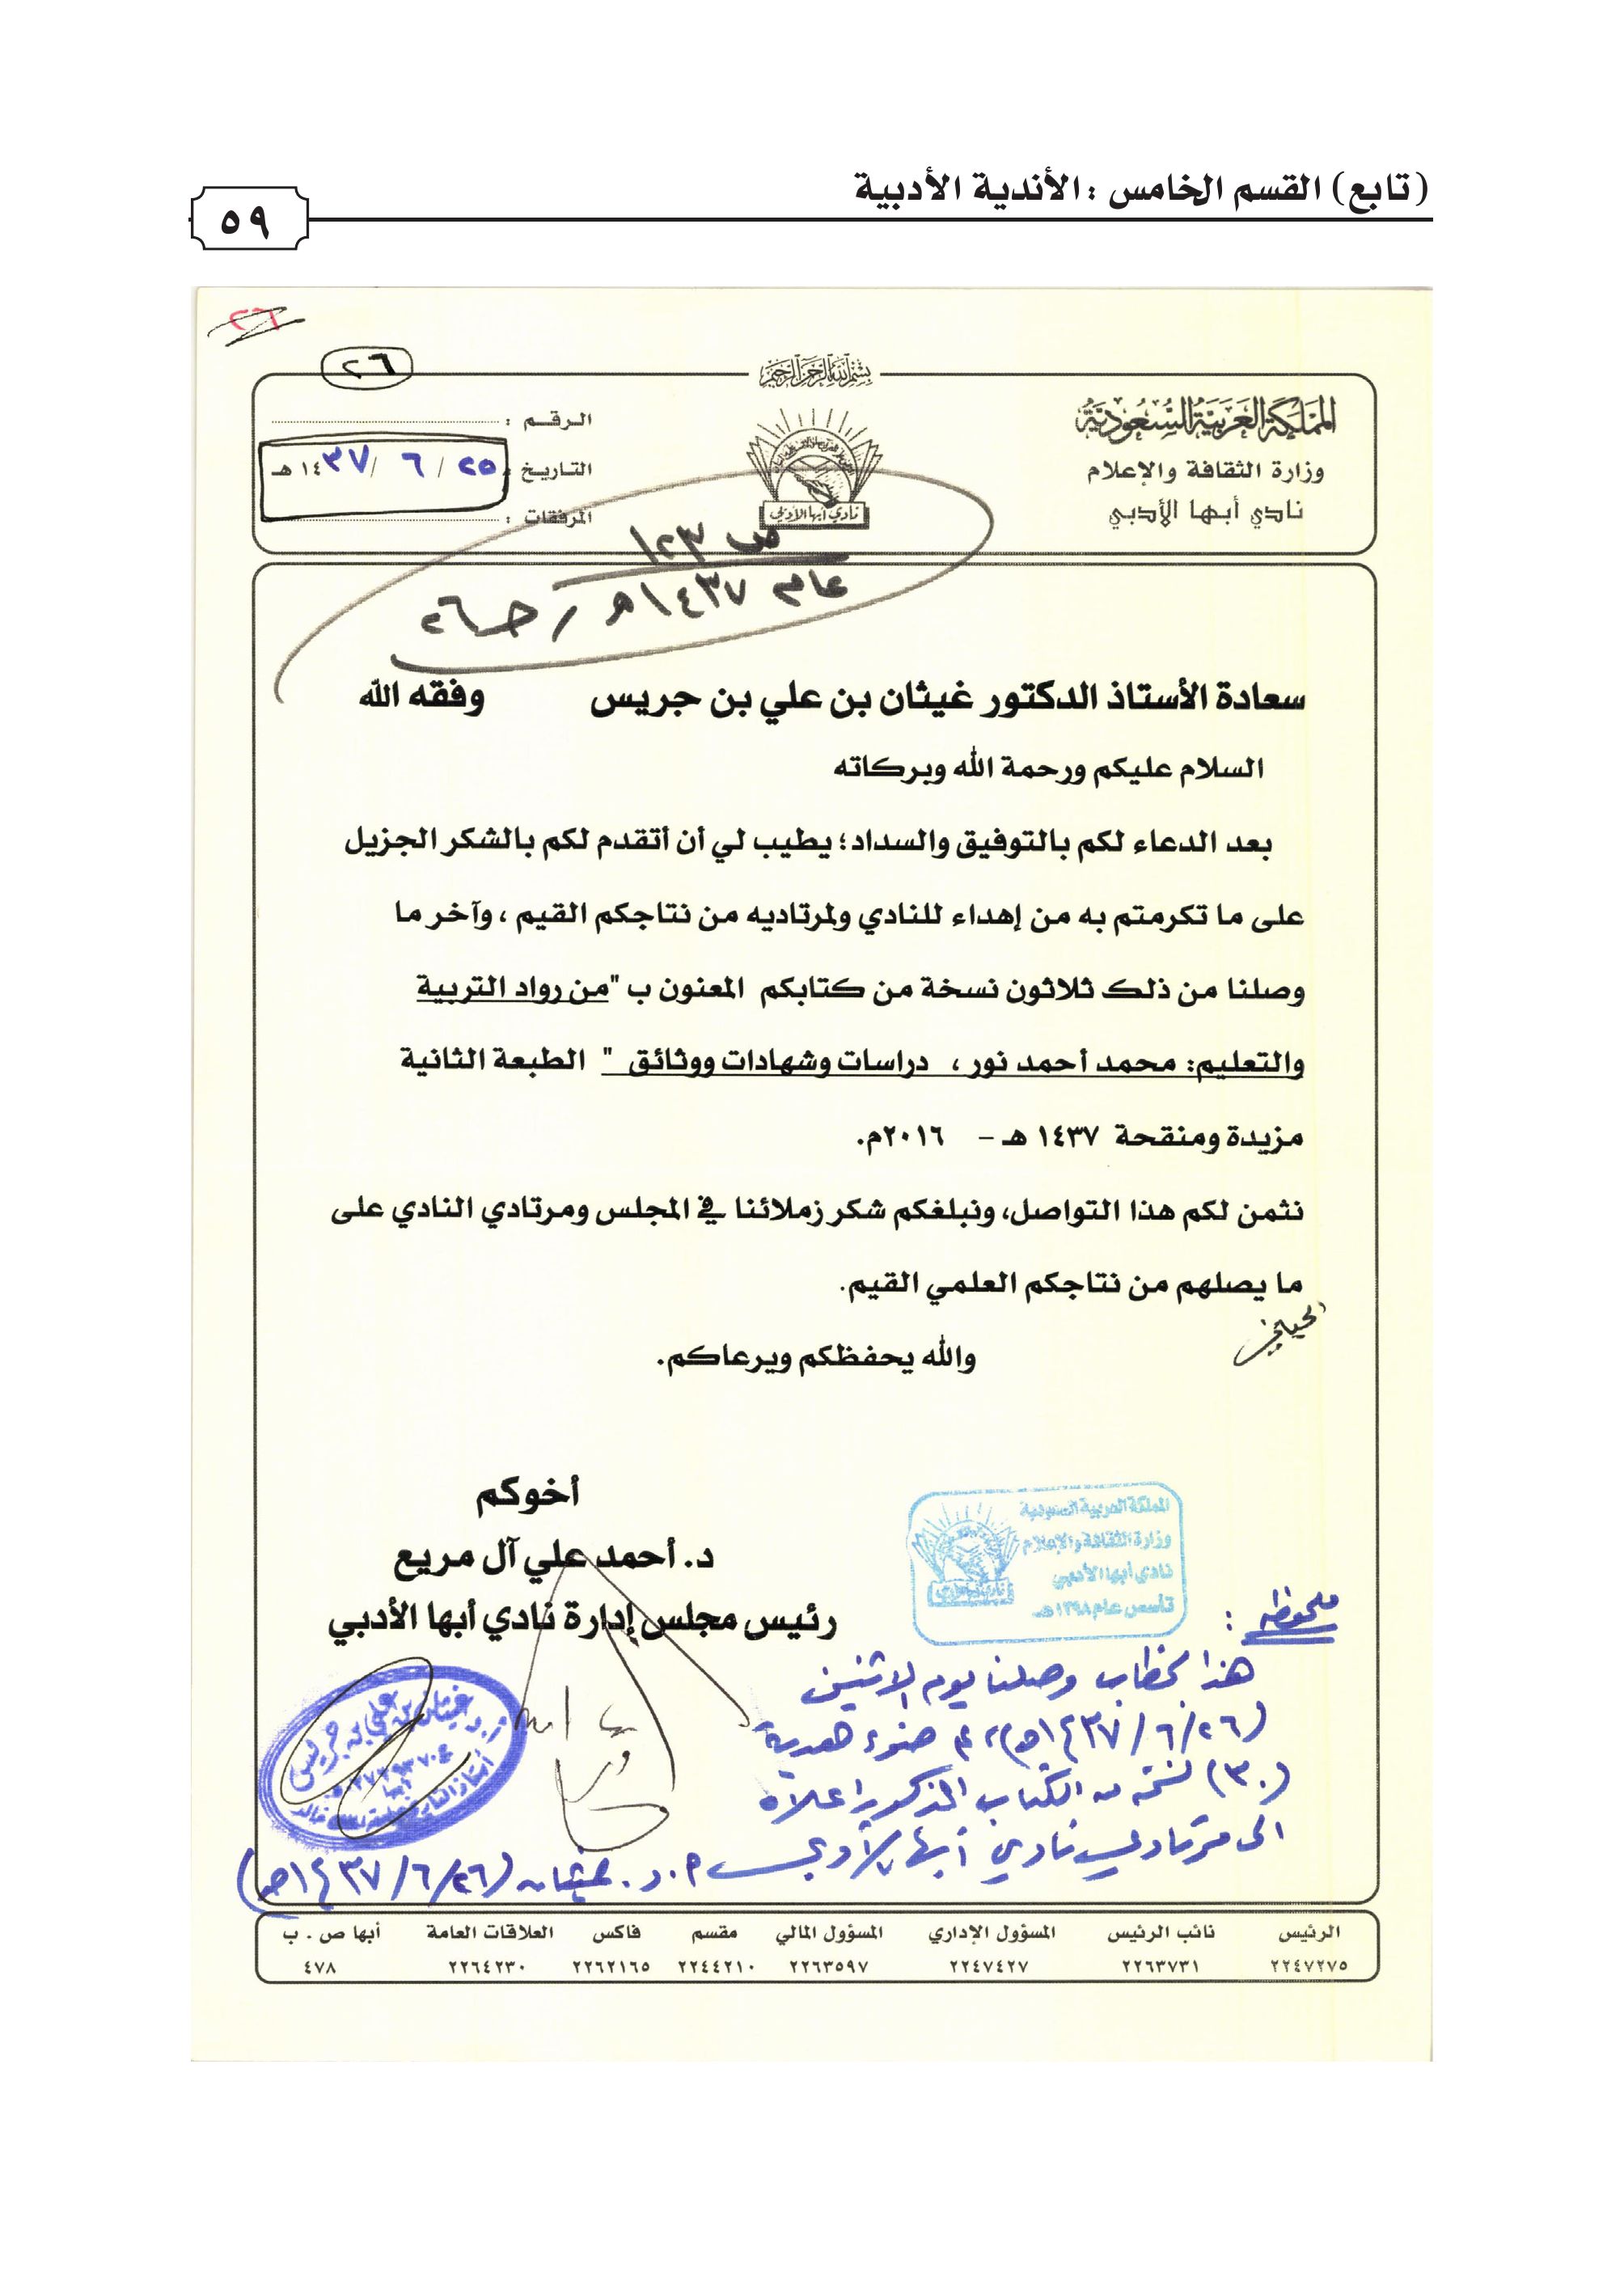 (تابع) القسم الخامس : الأندية الأدبية
٥٩
٢٦
٢٦
بسم الله الرحمن الرحيم
المملكة العربية السعودية
وزارة الثقافة والإعلام
نادي أبها الأدبي
نادي أبها الأدبي
الرقم :
التاريخ : ٢٥ / ٦ / ١٤٣٧ هـ
المرفقات :
ص ١٢٣
عام ١٤٣٧هـ / جـ ٢٦
سعادة الأستاذ الدكتور غيثان بن علي بن جريس وفقه الله
السلام عليكم ورحمة الله وبركاته
بعد الدعاء لكم بالتوفيق والسداد؛ يطيب لي أن أتقدم لكم بالشكر الجزيل
على ما تكرمتم به من إهداء للنادي ولمرتاديه من نتاجكم القيم ، وآخر ما
وصلنا من ذلك ثلاثون نسخة من كتابكم المعنون ب "من رواد التربية
والتعليم: محمد أحمد نور ، دراسات وشهادات ووثائق " الطبعة الثانية
مزيدة ومنقحة ١٤٣٧ هـ – ٢٠١٦م.
نثمن لكم هذا التواصل، ونبلغكم شكر زملائنا في المجلس ومرتادي النادي على
ما يصلهم من نتاجكم العلمي القيم.
والله يحفظكم ويرعاكم.
أخوكم
د. أحمد علي آل مريع
رئيس مجلس إدارة نادي أبها الأدبي
المملكة العربية السعودية
وزارة الثقافة والإعلام
نادي أبها الأدبي
تأسس عام ١٣٩٨هـ
ملحوظة :
هذا الخطاب وصلنا يوم الاثنين
(٢٦/٦/١٤٣٧هـ) هدية
(٣٠) نسخة من الكتاب المذكور اعلاه
الى مرتادي نادي أبها الأدبي أ.د. غيثان (٢٦/٦/١٤٣٧هـ)
أ.د. غيثان بن علي بن جريس
أبها
الرئيس نائب الرئيس المسؤول الإداري المسؤول المالي مقسم فاكس العلاقات العامة أبها ص . ب
٢٢٤٧٢٧٥ ٢٢٦٣٧٣١ ٢٢٤٧٤٢٧ ٢٢٦٣٥٩٧ ٢٢٤٤٢١٠ ٢٢٦٢١٦٥ ٢٢٦٤٢٣٠ ٤٧٨